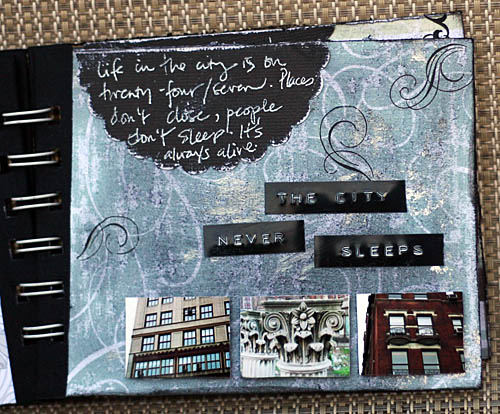 life in the city is on
twenty-four/seven. Places
don't close, people
don't sleep. It's
always alive.
THE CITY
NEVER
SLEEPS